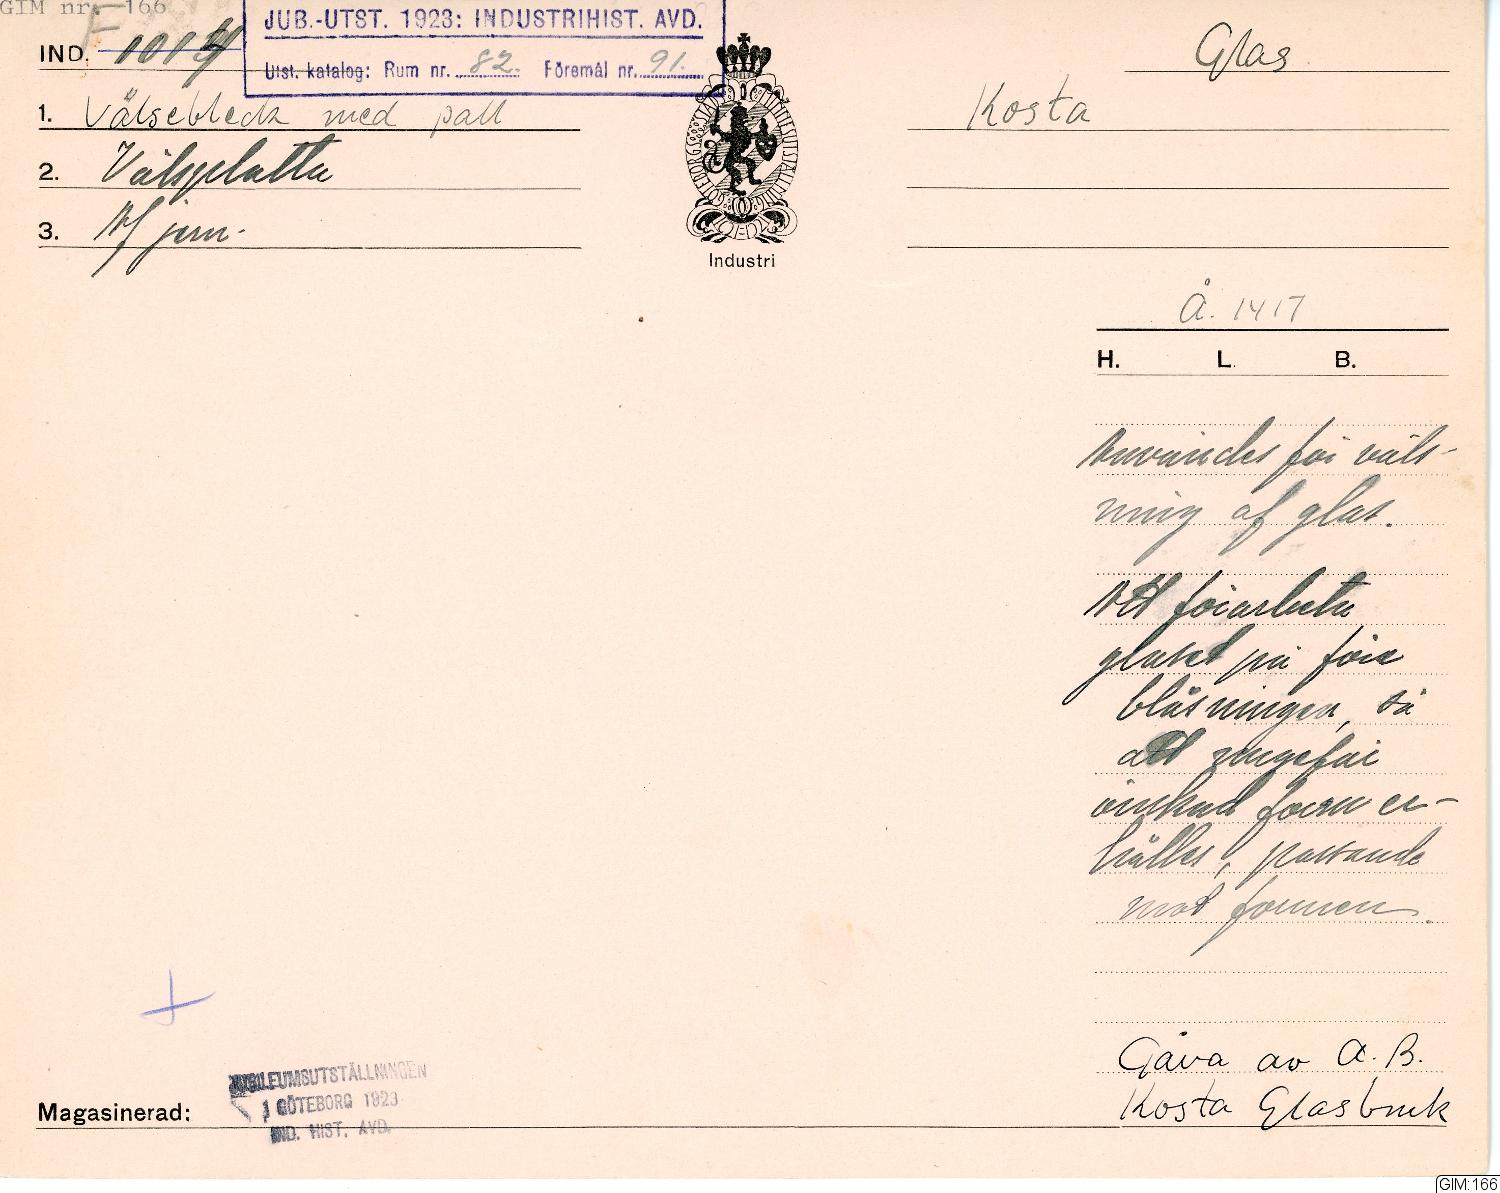 GIM nr. 166
F
JUB.-UTST. 1923: INDUSTRIHIST. AVD.
Utst. katalog: Rum nr. 82. Föremål nr. 91.
IND. 1014
Glas
1. Välsebleck med pall
Kosta
2. Välsplatta
3. Af jern.
GÖTEBORGS STADS MINNESUTSTÄLLNING
Industri
Å. 1417
H. L. B.
Användes för väls-
ning af glas.
Att förarbeta
glaset på före
blåsningen, så
att ungefär
önskad form er-
hålles, passande
mot formen.
Gåva av A.B.
Kosta Glasbruk
JUBILEUMSUTSTÄLLNINGEN
I GÖTEBORG 1923
IND. HIST. AVD.
Magasinerad:
GIM:166